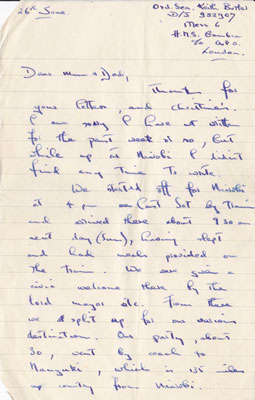 26th June
Ord. Sea. Keith Butler
D/S 932907
Mess 6
H.M.S. Gambia
c/o G.P.O.
London.
Dear Mum & Dad,
Thanks for
your letters, and Christine's.
I am sorry I have not written
for the past week or so, but
while up at Nairobi I didn't
find any time to write.
We started off for Nairobi
at 4 pm on last Sat by train
and arrived there about 9 30 am
next day (Sun), having slept
and had meals provided on
the train. We were given a
civic welcome there by the
Lord mayor etc. From there
we split up for our various
destinations. Our party, about
30, went by coach to
Nanyuki, which is 135 miles
up country from Nairobi.